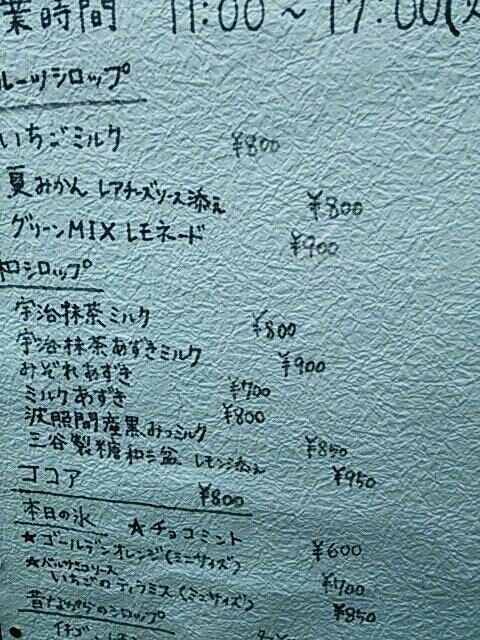 業時間 11:00～17:00(
ルーツシロップ
いちごミルク ¥800
夏みかん レアチーズソース添え ¥800
グリーンMIXレモネード ¥900
和シロップ
宇治抹茶ミルク ¥800
宇治抹茶あずきミルク ¥900
みぞれあずき ¥700
ミルクあずき ¥800
波照間産黒みつミルク ¥850
三谷製糖和三盆 レモン添え ¥950
ココア ¥800
本日の氷 ★チョコミント ¥600
★ゴールデンオレンジ(ミニサイズ) ¥700
★バルサミコソース
いちごのティラミス(ミニサイズ) ¥850
昔ながらのシロップ
イチゴ